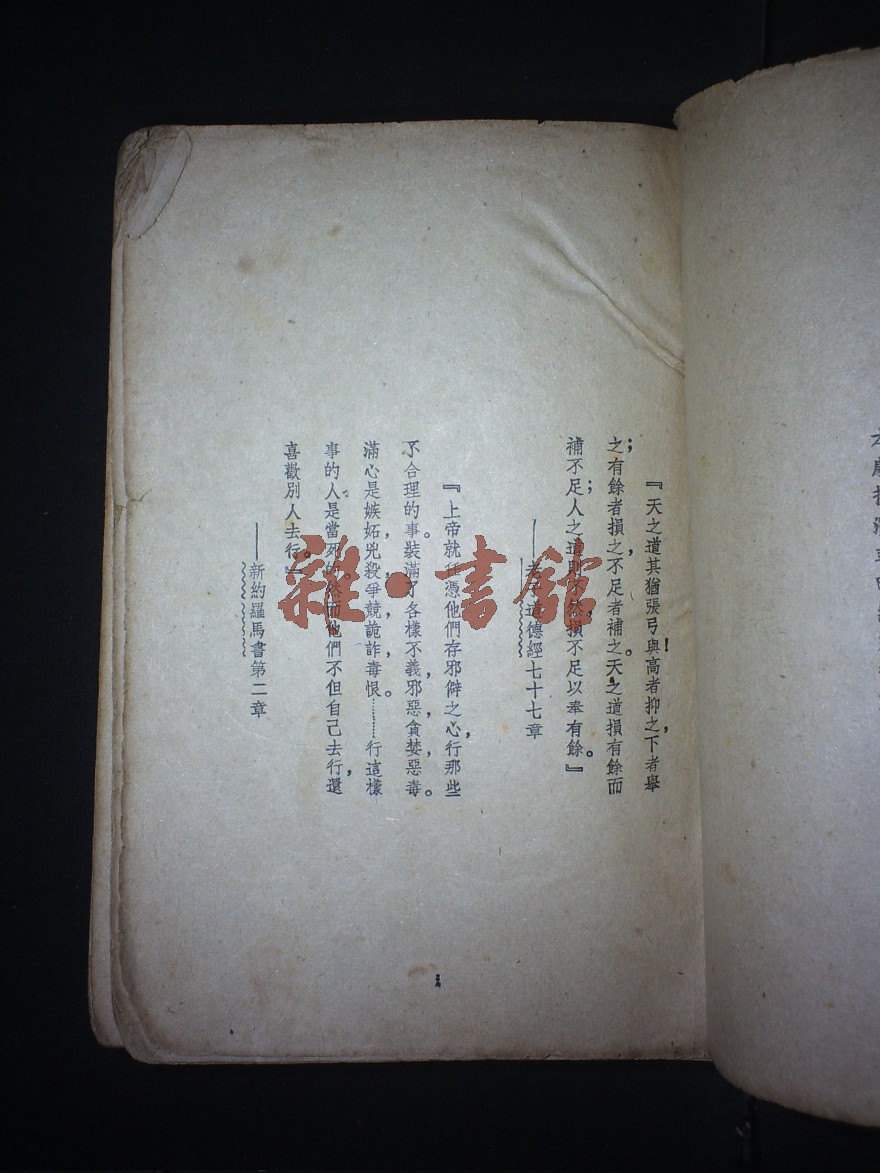 『天之道其猶張弓與！高者抑之，下者舉
之；有餘者損之，不足者補之。天之道損有餘而
補不足；人之道則不然，損不足以奉有餘。』
——老子道德經七十七章
『上帝就任憑他們存邪僻之心，行那些
不合理的事。裝滿了各樣不義，邪惡，貪婪，惡毒。
滿心是嫉妬，兇殺，爭競，詭詐，毒恨。……行這樣
事的人是當死的。然而他們不但自己去行，還
喜歡別人去行。』
——新約羅馬書第二章
雜·書館